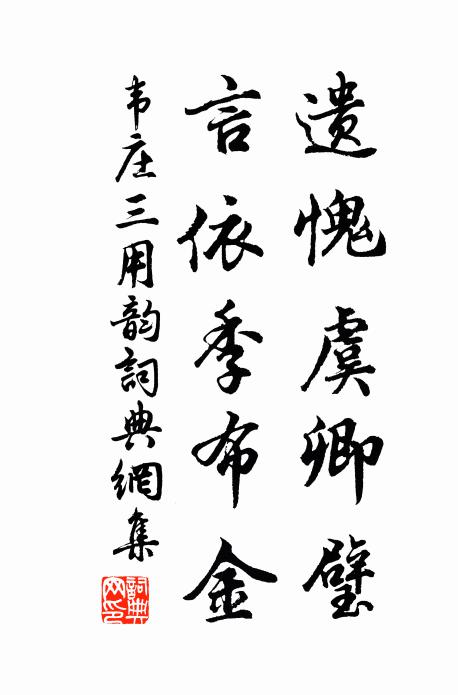 遺愧虞卿璧
言依季布金
韦庄三用韵詞典網集
詞典网印